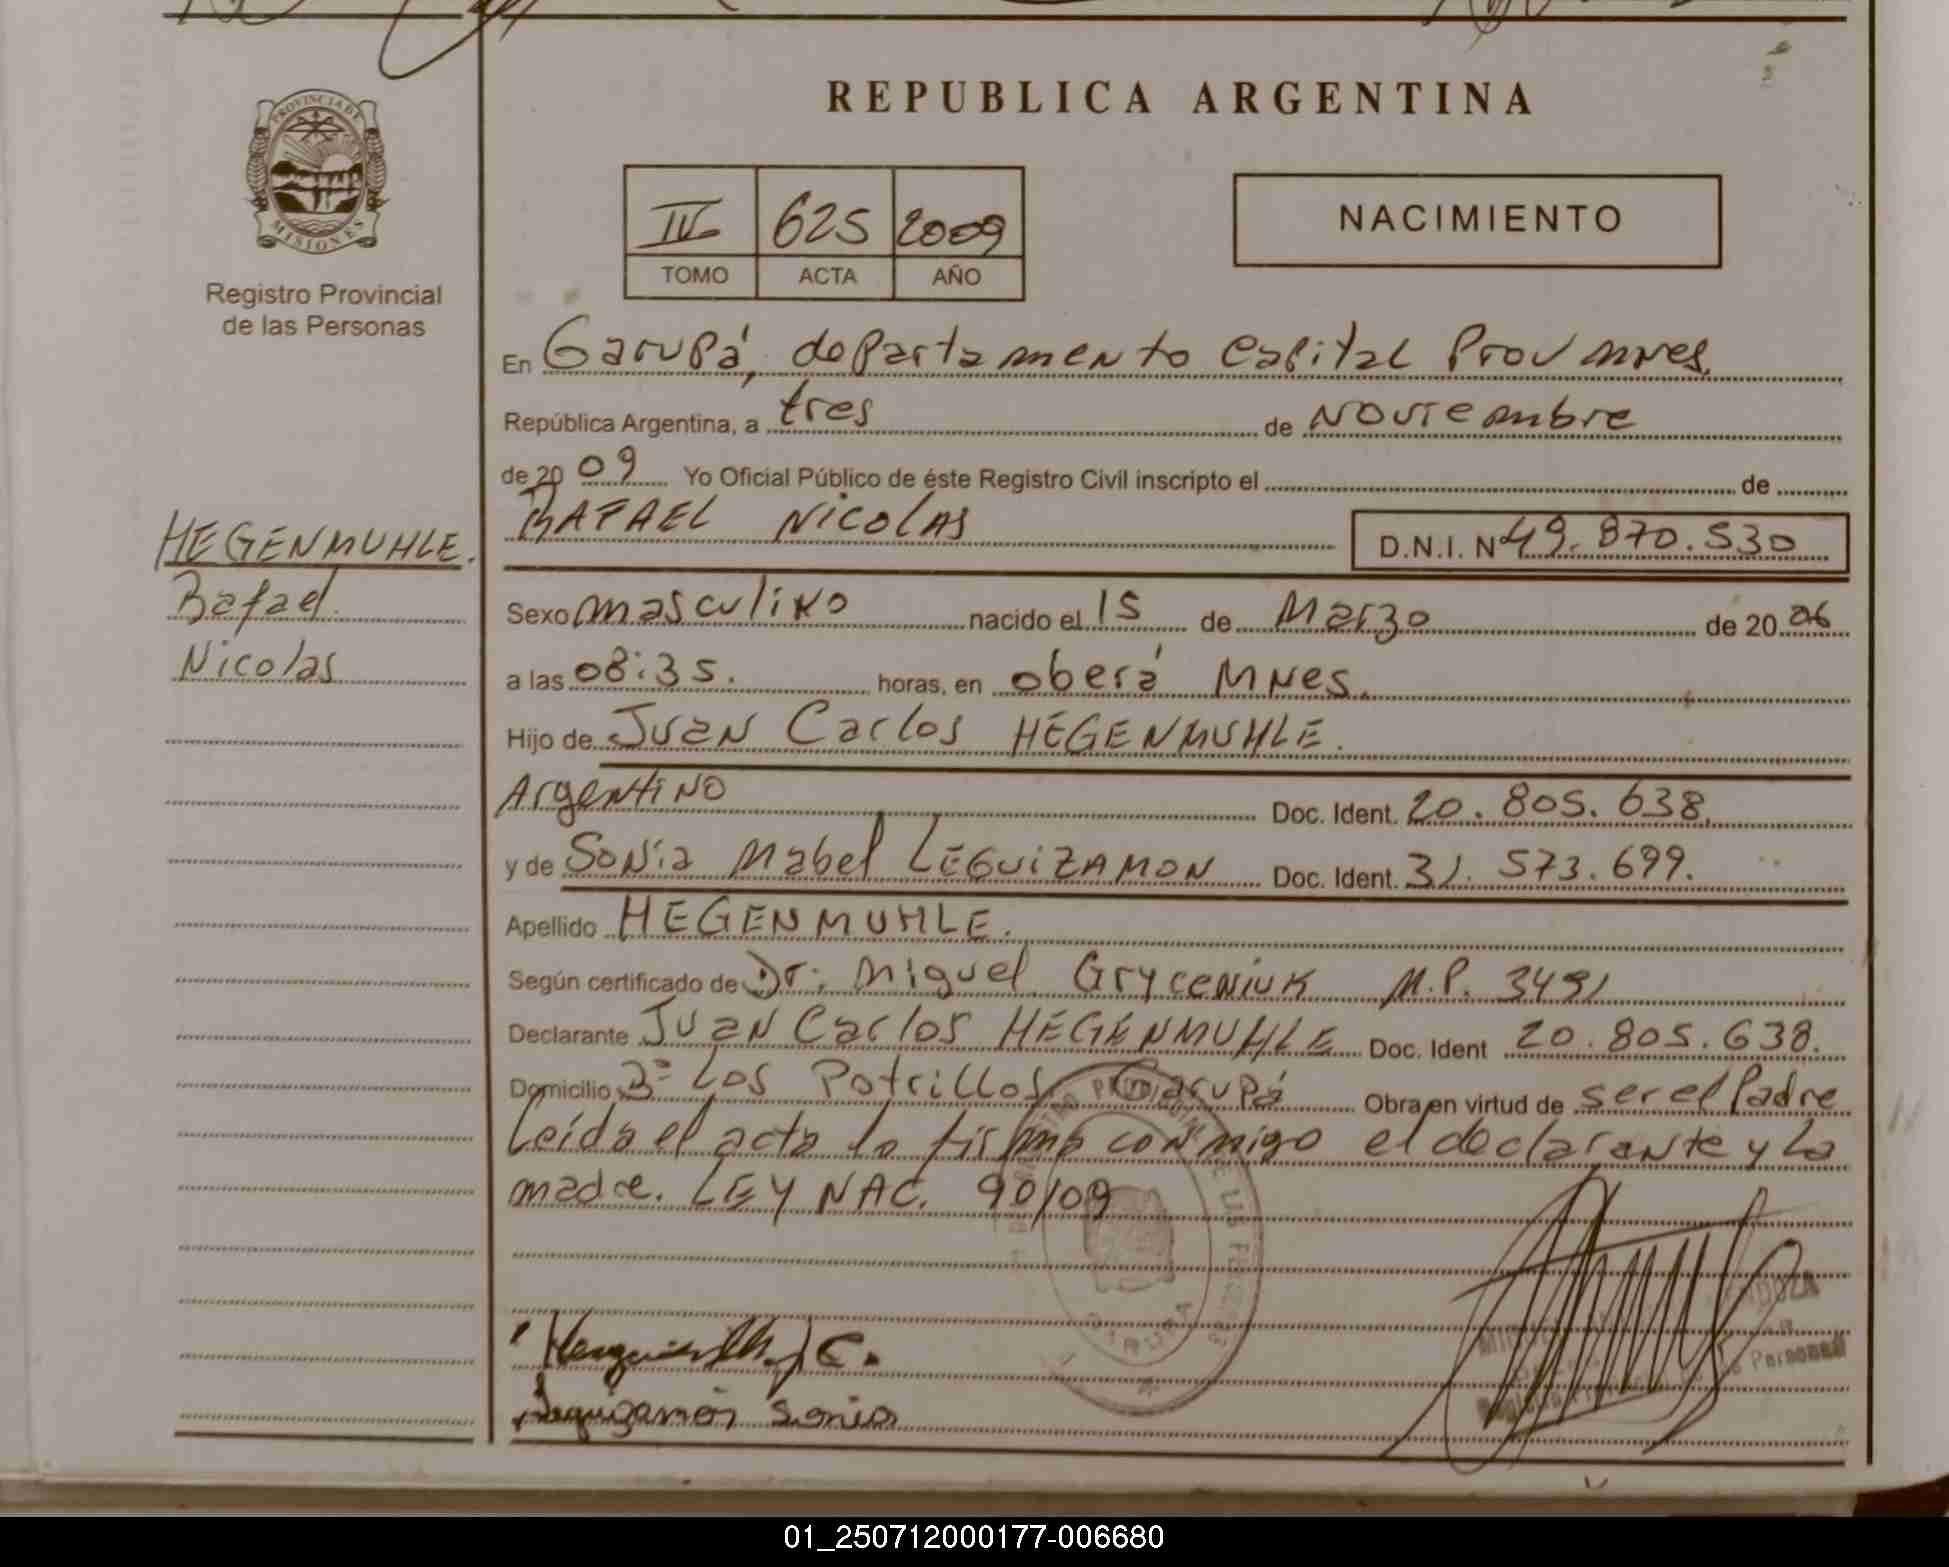 PROVINCIA DE
MISIONES
Registro Provincial
de las Personas
REPUBLICA ARGENTINA
IV 625 2009
TOMO ACTA AÑO
NACIMIENTO
En Garupá, departamento Capital Prov Mnes.
República Argentina, a tres de Noviembre
de 20 09 Yo Oficial Público de éste Registro Civil inscripto el de
RAFAEL NICOLAS D.N.I. Nº 49.870.530
HEGENMUHLE.
Rafael
Nicolas
Sexo masculino nacido el 15 de Marzo de 20 06
a las 08:35. horas, en oberá MNes.
Hijo de Juan Carlos HEGENMUHLE.
Argentino Doc. Ident. 20.805.638.
y de Sonia Mabel LEGUIZAMON Doc. Ident. 31.573.699.
Apellido HEGENMUHLE.
Según certificado de Dr: Miguel Gryceniuk M.P. 3491
Declarante Juan Carlos HEGENMUHLE Doc. Ident 20.805.638.
Domicilio Bº Los Potrillos Garupá Obra en virtud de ser el Padre
Leída el acta la firma conmigo el declarante y la
madre. LEY NAC. 90/09
J C.
Leguizamon Sonia
GARUPA
01_250712000177-006680